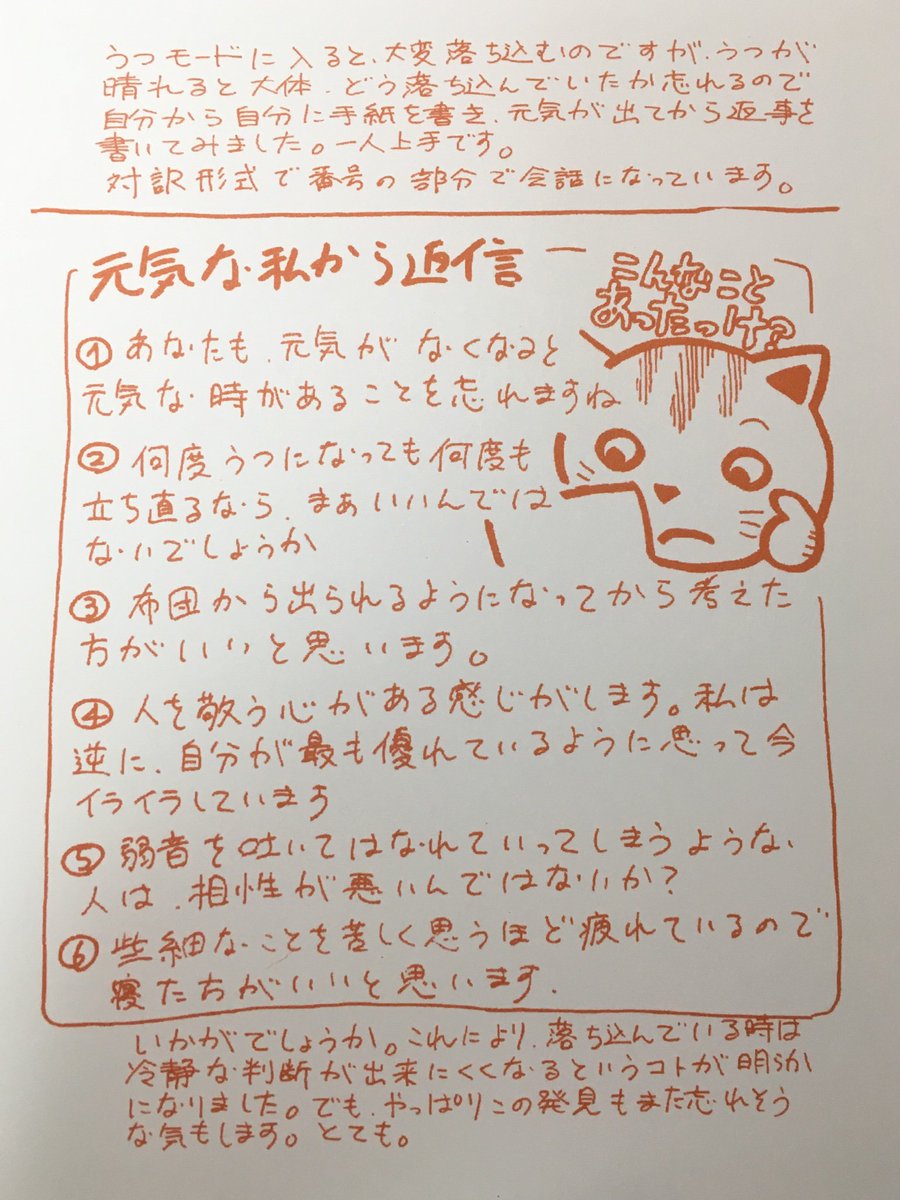 うつモードに入ると、大変落ち込むのですが、うつが
晴れると大体、どう落ち込んでいたか忘れるので
自分から自分に手紙を書き、元気が出てから返事を
書いてみました。一人上手です。
対訳形式で番号の部分で会話になっています。
元気な私から返信
こんなこと
あったっけ?
① あなたも、元気がなくなると
元気な時があることを忘れますね
② 何度うつになっても何度も
立ち直るなら、まぁいいんでは
ないでしょうか
③ 布団から出られるようになってから考えた
方がいいと思います。
④ 人を敬う心がある感じがします。私は
逆に、自分が最も優れているように思って今
イライラしています
⑤ 弱音を吐いてはなれていってしまうような、
人は、相性が悪いんではないか?
⑥ 些細なことを苦しく思うほど疲れているので
寝た方がいいと思います.
いかがでしょうか。これにより、落ち込んでいる時は
冷静な判断が出来にくくなるというコトが明らか
になりました。でも、やっぱりこの発見もまた忘れそう
な気もします。とても。